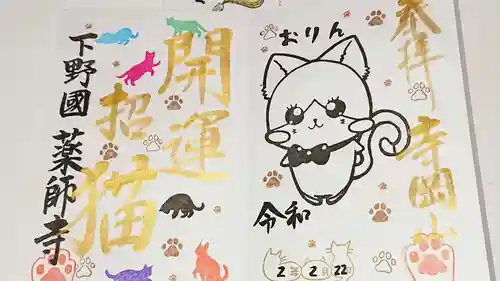 奉拝
寺岡山
おりん
令和
2年2月22
開運
招猫
下野國 薬師寺